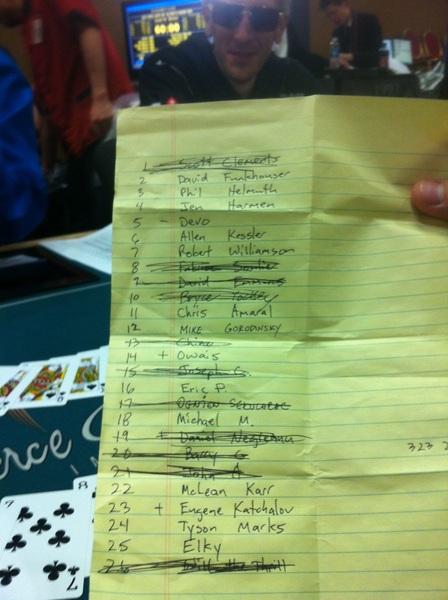 60:00
1 Scott Clements
2 David Funkhouser
3 Phil Helmuth
4 Jen Harmen
5 - Devo
6 Allen Kessler
7 Robert Williamson
8
9 David
10 Bryce Yockey
11 Chris Amaral
12 MIKE GORODINSKY
13 Chino
14 + Owais
15 Joseph C.
16 Eric P.
17
18 Michael M.
19 Daniel Negreanu
20 Barry G
21 John A
22 McLean Karr
23 + Eugene Katchalov
24 Tyson Marks
25 Elky
26 Will the Thrill
323 2
erce
8
7
7